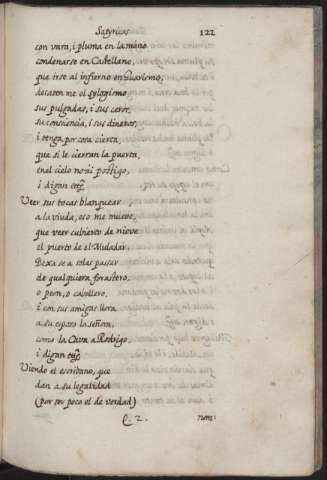 Satyricas 122
con vara, i pluma en la mano
condenarse en Castellano,
que irse al infierno en Guarismo,
desaten me el sylogismo
sus pulgadas, i sus ceros,
su consciencia, i sus dineros,
i tenga por cosa cierta,
que si le cierran la puerta,
en el cielo no ai postigo,
i digan etc.
Veer sus tocas blanquear
a la viuda, eso me mueve,
que veer cubierto de nieve
el puerto de el Muladar,
Dexase a solas passar
de qualquiera forastero,
o peon, o cavallero,
I con sus amigas llora
a su esposo la señora,
como la Cava a Rodrigo,
i digan etc.
Viendo el escribano, que
dan a su legalidad
(por ser poco el de verdad)
Q. 2. nom: